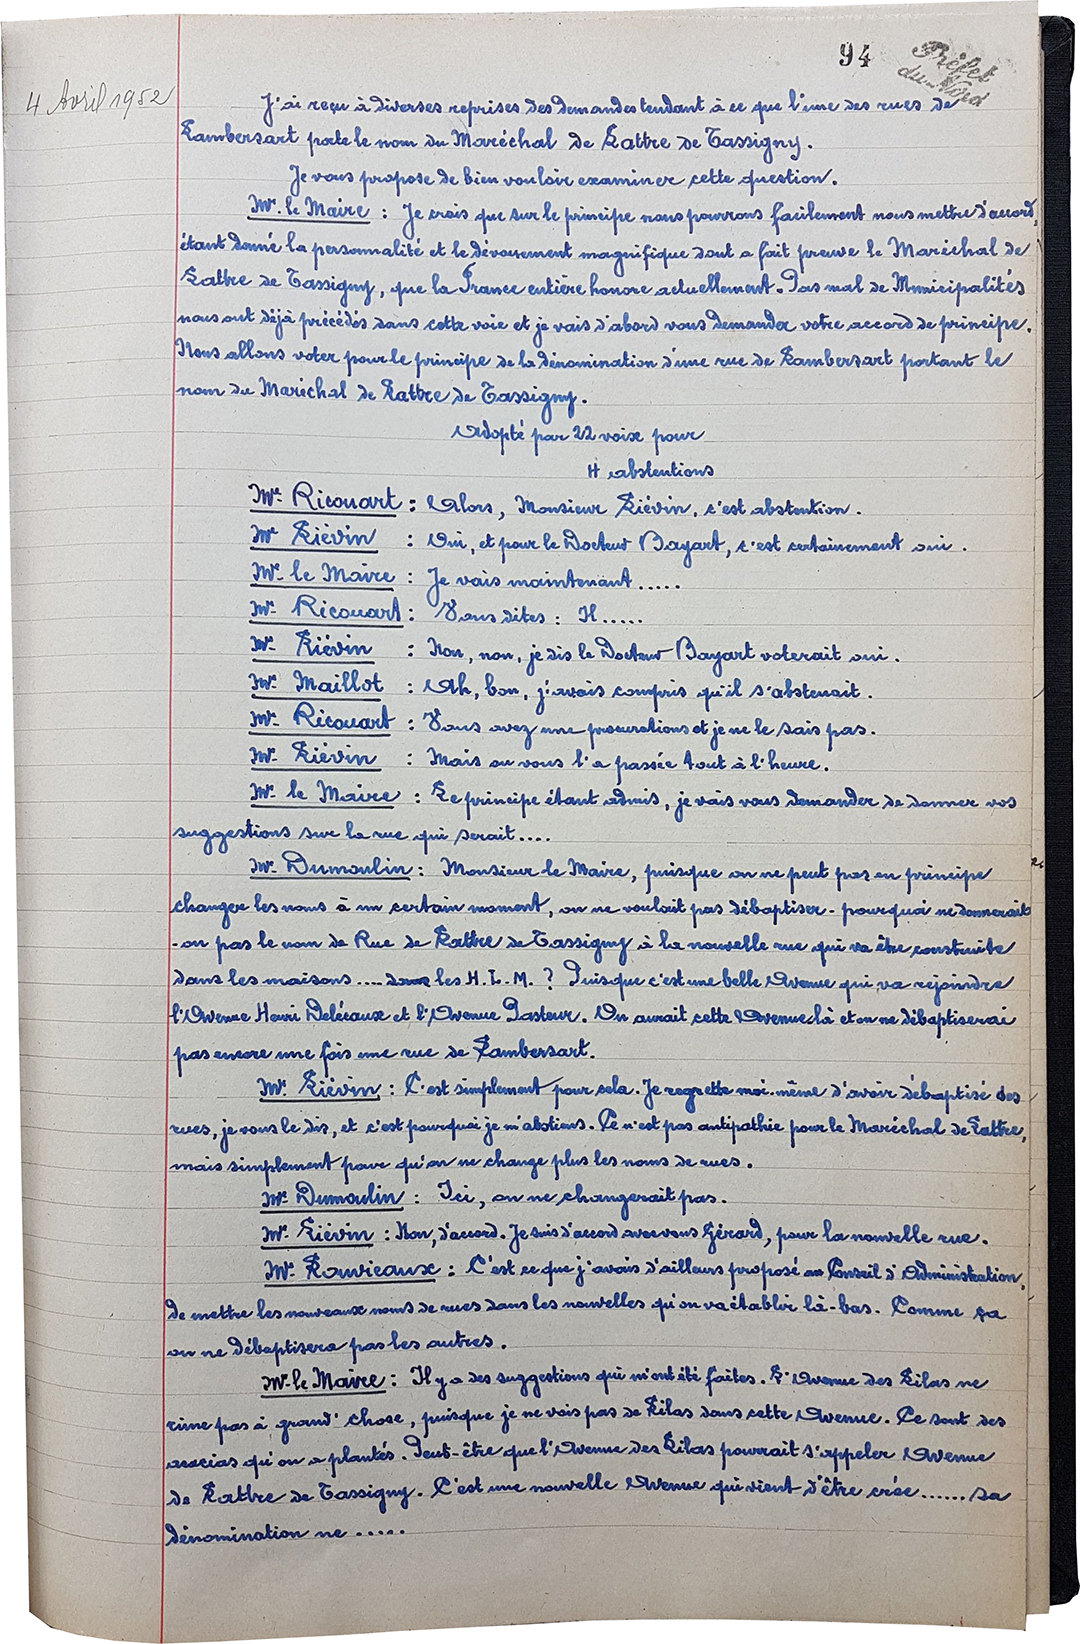 94
Préfet
du Nord
4 Avril 1952
J'ai reçu à diverses reprises des demandes tendant à ce que l'une des rues de
Lambersart porte le nom du Maréchal de Lattre de Tassigny.
Je vous propose de bien vouloir examiner cette question.
Mr. le Maire : Je crois que sur le principe nous pourrons facilement nous mettre d'accord,
étant donné la personnalité et le dévouement magnifique dont a fait preuve le Maréchal de
Lattre de Tassigny, que la France entière honore actuellement. Pas mal de Municipalités
nous ont déjà précédés dans cette voie et je vais d'abord vous demander votre accord de principe.
Nous allons voter pour le principe de la dénomination d'une rue de Lambersart portant le
nom du Maréchal de Lattre de Tassigny.
Adopté par 22 voix pour
4 abstentions
Mr. Ricouart : Alors, Monsieur Liévin, c'est abstention.
Mr Liévin : Oui, et pour le Docteur Bayart, c'est certainement oui.
Mr. le Maire : Je vais maintenant.....
Mr. Ricouart : Vous dites : 4.....
Mr. Liévin : Non, non, je dis le Docteur Bayart voterait oui.
Mr. Maillot : Ah, bon, j'avais compris qu'il s'abstenait.
Mr. Ricouart : Vous avez une procurations et je ne le sais pas.
Mr. Liévin : Mais on vous l'a passée tout à l'heure.
Mr. le Maire : Le principe étant admis, je vais vous demander de donner vos
suggestions sur la rue qui serait....
Mr. Dumoulin : Monsieur le Maire, puisque on ne peut pas en principe
changer les noms à un certain moment, on ne voulait pas débaptiser - pourquoi ne donnerait
-on pas le nom de Rue de Lattre de Tassigny à la nouvelle rue qui va être construite
dans les maisons .... dans les H.L.M. ? Puisque c'est une belle Avenue qui va rejoindre
l'Avenue Henri Delécaux et l'Avenue Pasteur. On aurait cette Avenue là et on ne débaptiserai
pas encore une fois une rue de Lambersart.
Mr. Liévin : C'est simplement pour cela. Je regrette moi-même d'avoir débaptisé des
rues, je vous le dis, et c'est pourquoi je m'abstiens. Ce n'est pas antipathie pour le Maréchal de Lattre,
mais simplement pour qu'on ne change plus les noms de rues.
Mr. Dumoulin : Ici, on ne changerait pas.
Mr. Liévin : Non, d'accord. Je suis d'accord avec vous Gérard, pour la nouvelle rue.
Mr. Rouvieaux : C'est ce que j'avais d'ailleurs proposé au Conseil d'Administration,
de mettre les nouveaux noms de rues dans les nouvelles qu'on va établir là-bas. Comme ça
on ne débaptisera pas les autres.
Mr. le Maire : Il y a des suggestions qui m'ont été faites. L'Avenue des Lilas ne
rime pas à grand' chose, puisque je ne vois pas de Lilas dans cette Avenue. Ce sont des
acacias qu'on a plantés. Peut-être que l'Avenue des Lilas pourrait s'appeler Avenue
de Lattre de Tassigny. C'est une nouvelle Avenue qui vient d'être créée ...... sa
dénomination ne .....